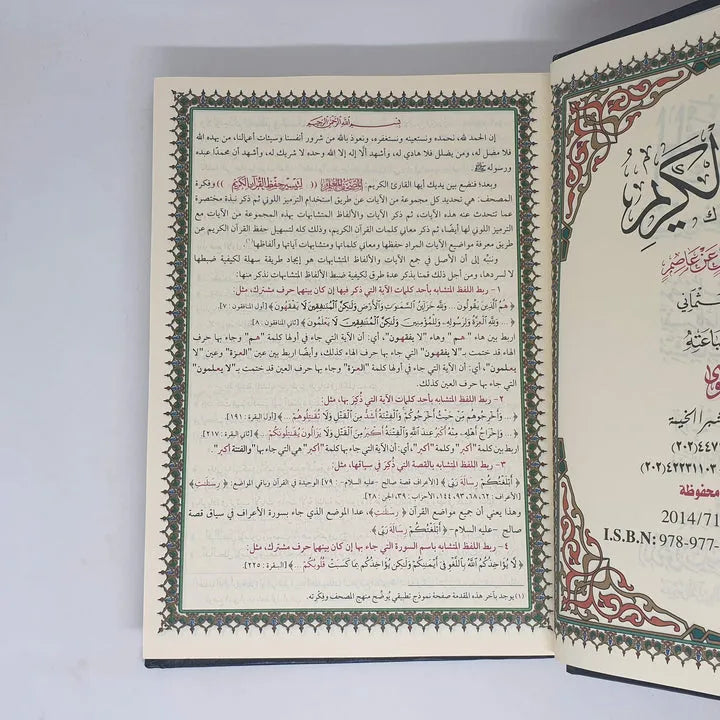 بسم الله الرحمن الرحيم
إن الحمد لله، نحمده ونستعينه ونستغفره، ونعوذ بالله من شرور أنفسنا وسيئات أعمالنا، من يهده الله
فلا مضل له، ومن يضلل فلا هادي له، وأشهد ألا إله إلا الله وحده لا شريك له، وأشهد أن محمدًا عبده
ورسوله ﷺ.
وبعد؛ فنضع بين يديك أيها القارئ الكريم: ((لتيسير حفظ القرآن الكريم)) وفكرة
المصحف: هي تحديد كل مجموعة من الآيات عن طريق استخدام الترميز اللوني ثم ذكر نبذة مختصرة
عما تتحدث عنه هذه الآيات، ثم ذكر الآيات والألفاظ المتشابهات بهذه المجموعة من الآيات مع
الترميز اللوني لها أيضًا، ثم ذكر معاني كلمات القرآن الكريم، وذلك كله لتسهيل حفظ القرآن الكريم عن
طريق معرفة مواضيع الآيات المراد حفظها ومعاني كلماتها ومتشابهات آياتها وألفاظها(١).
وننبَّه إلى أن الأصل في جمع الآيات والألفاظ المتشابهات هو إيجاد طريقة سهلة لكيفية ضبطها
لا لسردها، ومن أجل ذلك قمنا بذكر عدة طرق لكيفية ضبط الألفاظ المتشابهات نذكر منها:
١- ربط اللفظ المتشابه بأحد كلمات الآية التي ذكر فيها إن كان بينهما حرف مشترك، مثل:
﴿ هُمُ الَّذِينَ يَقُولُونَ ... وَلِلَّهِ خَزَائِنُ السَّمَوَاتِ وَالْأَرْضِ وَلَكِنَّ الْمُنَافِقِينَ لَا يَفْقَهُونَ ﴾ [أول المنافقون: ٧].
﴿ ... وَلِلَّهِ الْعِزَّةُ وَلِرَسُولِهِ وَلِلْمُؤْمِنِينَ وَلَكِنَّ الْمُنَافِقِينَ لَا يَعْلَمُونَ ﴾ [ثاني المنافقون: ٨].
اربط بين هاء "هم" وهاء "لا يفقهون"، أي: أن الآية التي جاء في أولها كلمة "هم" وجاء بها حرف
الهاء قد ختمت بـ"لا يفقهون" التي جاء بها حرف الهاء كذلك، وأيضًا اربط بين عين "العزة" وعين "لا
يعلمون"، أي: أن الآية التي جاء في أولها كلمة "العزة" وجاء بها حرف العين قد ختمت بـ"لا يعلمون"
التي جاء بها حرف العين كذلك.
٢- ربط اللفظ المتشابه بأحد كلمات الآية التي ذُكِرَ بها، مثل:
﴿ ... وَأَخْرِجُوهُم مِّنْ حَيْثُ أَخْرَجُوكُمْ وَالْفِتْنَةُ أَشَدُّ مِنَ الْقَتْلِ وَلَا تُقَاتِلُوهُمْ ... ﴾ [أول البقرة: ١٩١].
﴿ ... وَإِخْرَاجُ أَهْلِهِ مِنْهُ أَكْبَرُ عِندَ اللَّهِ وَالْفِتْنَةُ أَكْبَرُ مِنَ الْقَتْلِ وَلَا يَزَالُونَ يُقَاتِلُونَكُمْ ... ﴾ [ثاني البقرة: ٢١٧].
اربط بين كلمة "أكبر" وكلمة "أكبر"، أي: أن الآية التي جاء بها كلمة "أكبر" هي التي جاء بها "والفتنة أكبر".
٣- ربط اللفظ المتشابه بالقصة التي ذُكرَ في سياقها، مثل:
﴿ ... أَبْلَغْتُكُمْ رِسَالَةَ رَبِّي ... ﴾ [الأعراف قصة صالح -عليه السلام-: ٧٩] الوحيدة في القرآن وباقي المواضع: ﴿ رِسَالَاتِ ﴾
[الأعراف: ٦٢، ٦٨، ٩٣، ١٤٤، الأحزاب: ٣٩، الجن: ٢٨].
وهذا يعني أن جميع مواضع القرآن ﴿ رِسَالَاتِ ﴾، عدا الموضع الذي جاء بسورة الأعراف في سياق قصة
صالح -عليه السلام- ﴿ أَبْلَغْتُكُمْ رِسَالَةَ رَبِّي ﴾.
٤- ربط اللفظ المتشابه باسم السورة التي جاء بها إن كان بينهما حرف مشترك، مثل:
﴿ لَا يُؤَاخِذُكُمُ اللَّهُ بِاللَّغْوِ فِي أَيْمَانِكُمْ وَلَكِن يُؤَاخِذُكُم بِمَا كَسَبَتْ قُلُوبُكُمْ ... ﴾ [البقرة: ٢٢٥].
(١) يوجد بآخر هذه المقدمة صفحة نموذج تطبيقي يُوضِّح منهج المصحف وفكرته.
الكريم
عن عاصم
شبرا الخيمة
(٢٠٢)٤٤٧
(٢٠٢)٤٢٢٣١١٠٣
محفوظة
2014/71
I.S.B.N: 978-977-